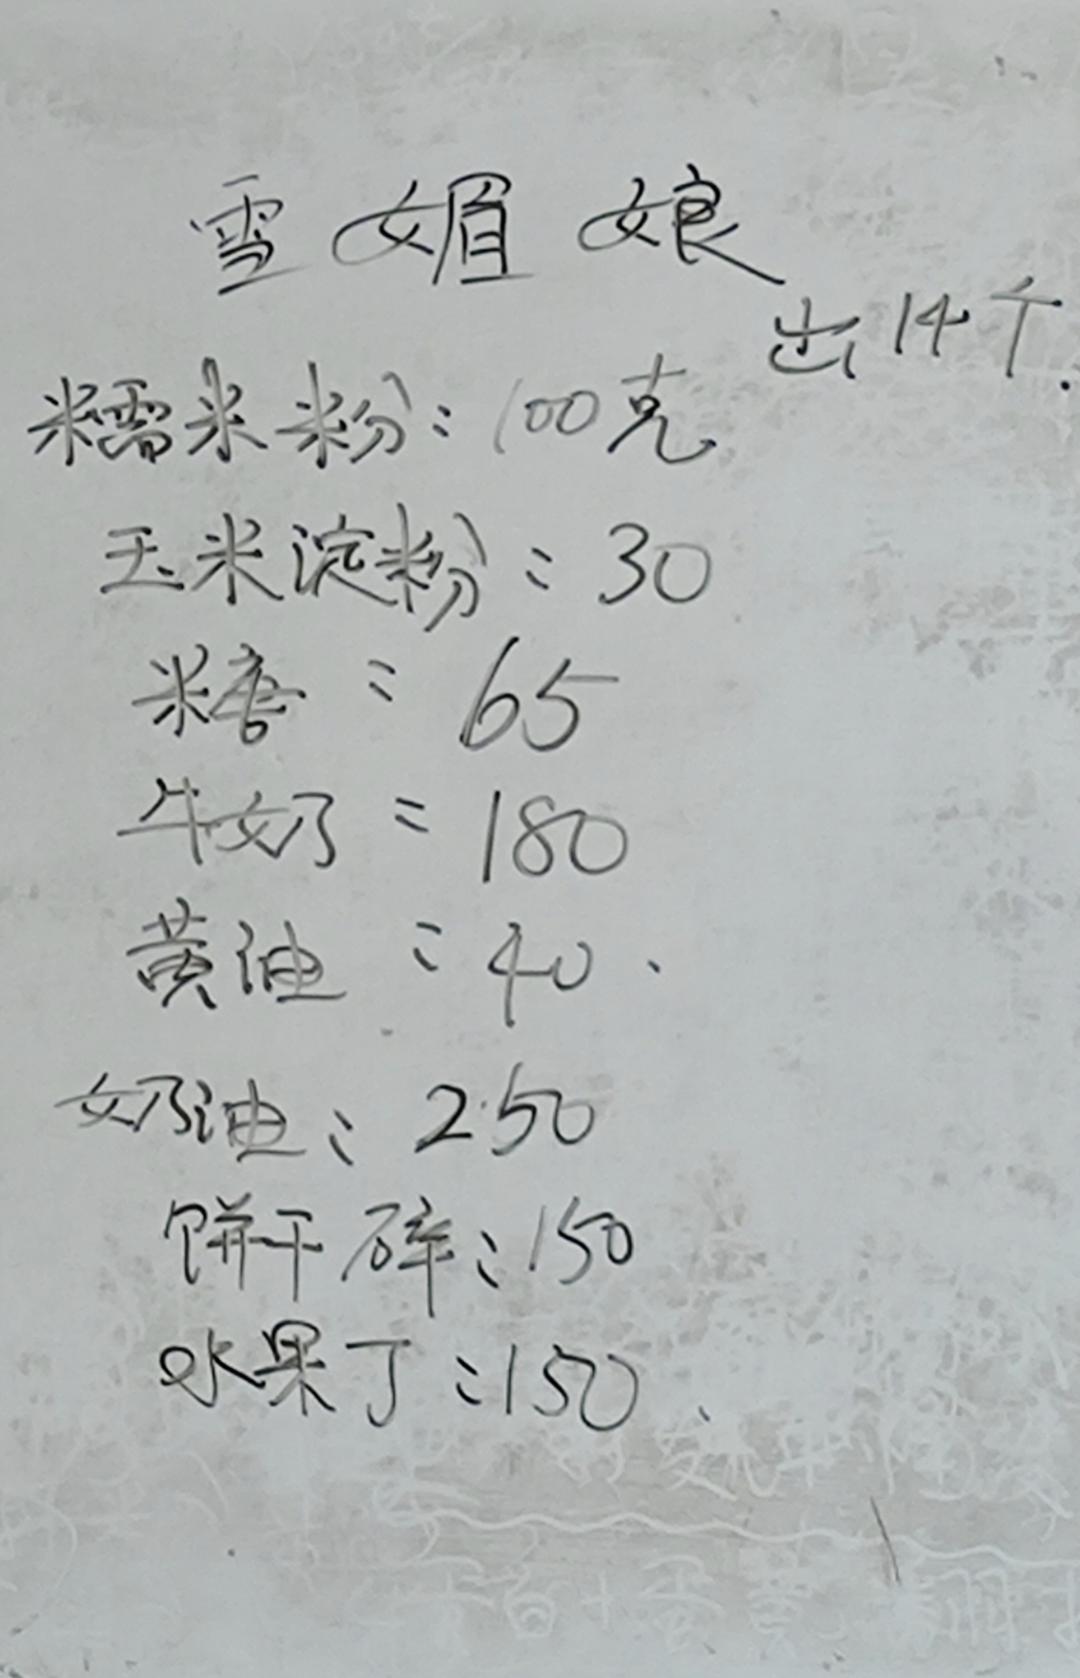 雪媚娘
出14个.
糯米粉：100克
玉米淀粉：30
糖：65
牛奶：180
黄油：40.
奶油：250
饼干碎：150
水果丁：150.